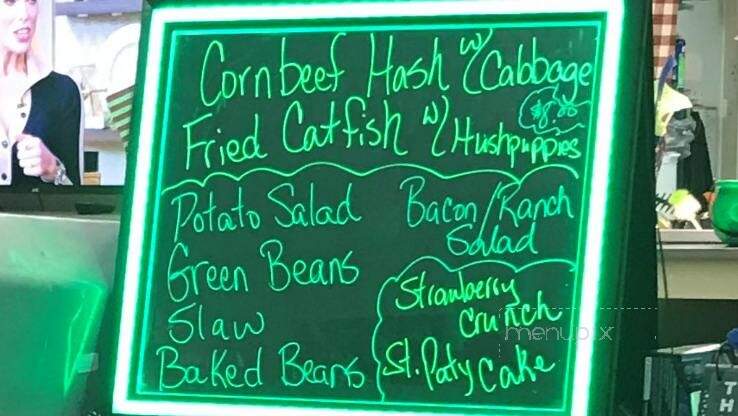 Cornbeef Hash w/ Cabbage
$8.00
Fried Catfish w/ Hushpuppies
Potato Salad
Bacon/Ranch
Salad
Green Beans
Slaw
Baked Beans
Strawberry
Crunch
St. Paty Cake
menupix
T
H